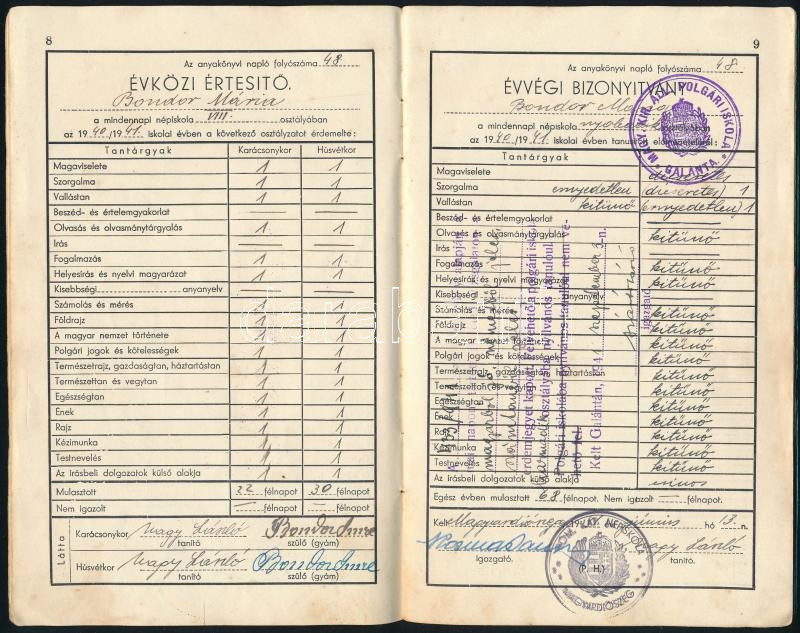 8
Az anyakönyvi napló folyószáma 48
ÉVKÖZI ÉRTESITŐ.
Bondor Mária
a mindennapi népiskola VIII. osztályában
az 1940/1941. iskolai évben a következő osztályzatot érdemelte:
Tantárgyak Karácsonykor Húsvétkor
Magaviselete 1 1
Szorgalma 1 1
Vallástan 1 1
Beszéd- és értelemgyakorlat — —
Olvasás és olvasmánytárgyalás 1 1
Irás — —
Fogalmazás 1 1
Helyesirás és nyelvi magyarázat 1 1
Kisebbségi anyanyelv — —
Számolás és mérés 1 1
Földrajz 1 1
A magyar nemzet története 1 1
Polgári jogok és kötelességek 1 1
Természetrajz, gazdaságtan, háztartástan 1 1
Természettan és vegytan 1 1
Egészségtan 1 1
Ének 1 1
Rajz 1 1
Kézimunka 1 1
Testnevelés 1 1
Az irásbeli dolgozatok külső alakja 1 1
Mulasztott 22 félnapot 30 félnapot.
Nem igazolt — félnapot — félnapot.
Látta
Karácsonykor Nagy László Bondor Imre
tanitó szülő (gyám)
Húsvétkor Nagy László Bondor Imre
tanitó szülő (gyám)
9
Az anyakönyvi napló folyószáma 48
ÉVVÉGI BIZONYITVÁNY
Bondor
a mindennapi népiskola osztályában
az 1940/1941. iskolai évben
MAGY. KIR. ÁLL. POLGÁRI ISKOLA
GALÁNTA.
Tantárgyak
Magaviselete dicséretes
Szorgalma ernyedetlen (dicséretes) 1
Vallástan kitünő (ernyedetlen) 1
Beszéd- és értelemgyakorlat
Olvasás és olvasmánytárgyalás kitünő
Irás
Fogalmazás kitünő
Helyesirás és nyelvi magyarázat kitünő
Kisebbségi anyanyelv
Számolás és mérés kitünő
Földrajz kitünő
A magyar nemzet története kitünő
Polgári jogok és kötelességek kitünő
Természetrajz, gazdaságtan, háztartástan kitünő
Természettan és vegytan kitünő
Egészségtan kitünő
Ének kitünő
Rajz kitünő
Kézimunka kitünő
Testnevelés kitünő
Az irásbeli dolgozatok külső alakja
Egész évben mulasztott 68 félnapot. Nem igazolt — félnapot.
Kelt 19 41 junius hó 13.-n.
Nagy László
Igazgató. (P. H.) tanitó.
NÉPISKOLA
MAGYARDIÓSZEG
érdemjegyet kapott, felvehető a polgári isk.
osztályába nyilvános tanulóul.
Polgári iskolába nyilvános tanulóul nem ve-
hető fel.
Kelt Galántán, 1941 szeptember 3-n.
igazgató